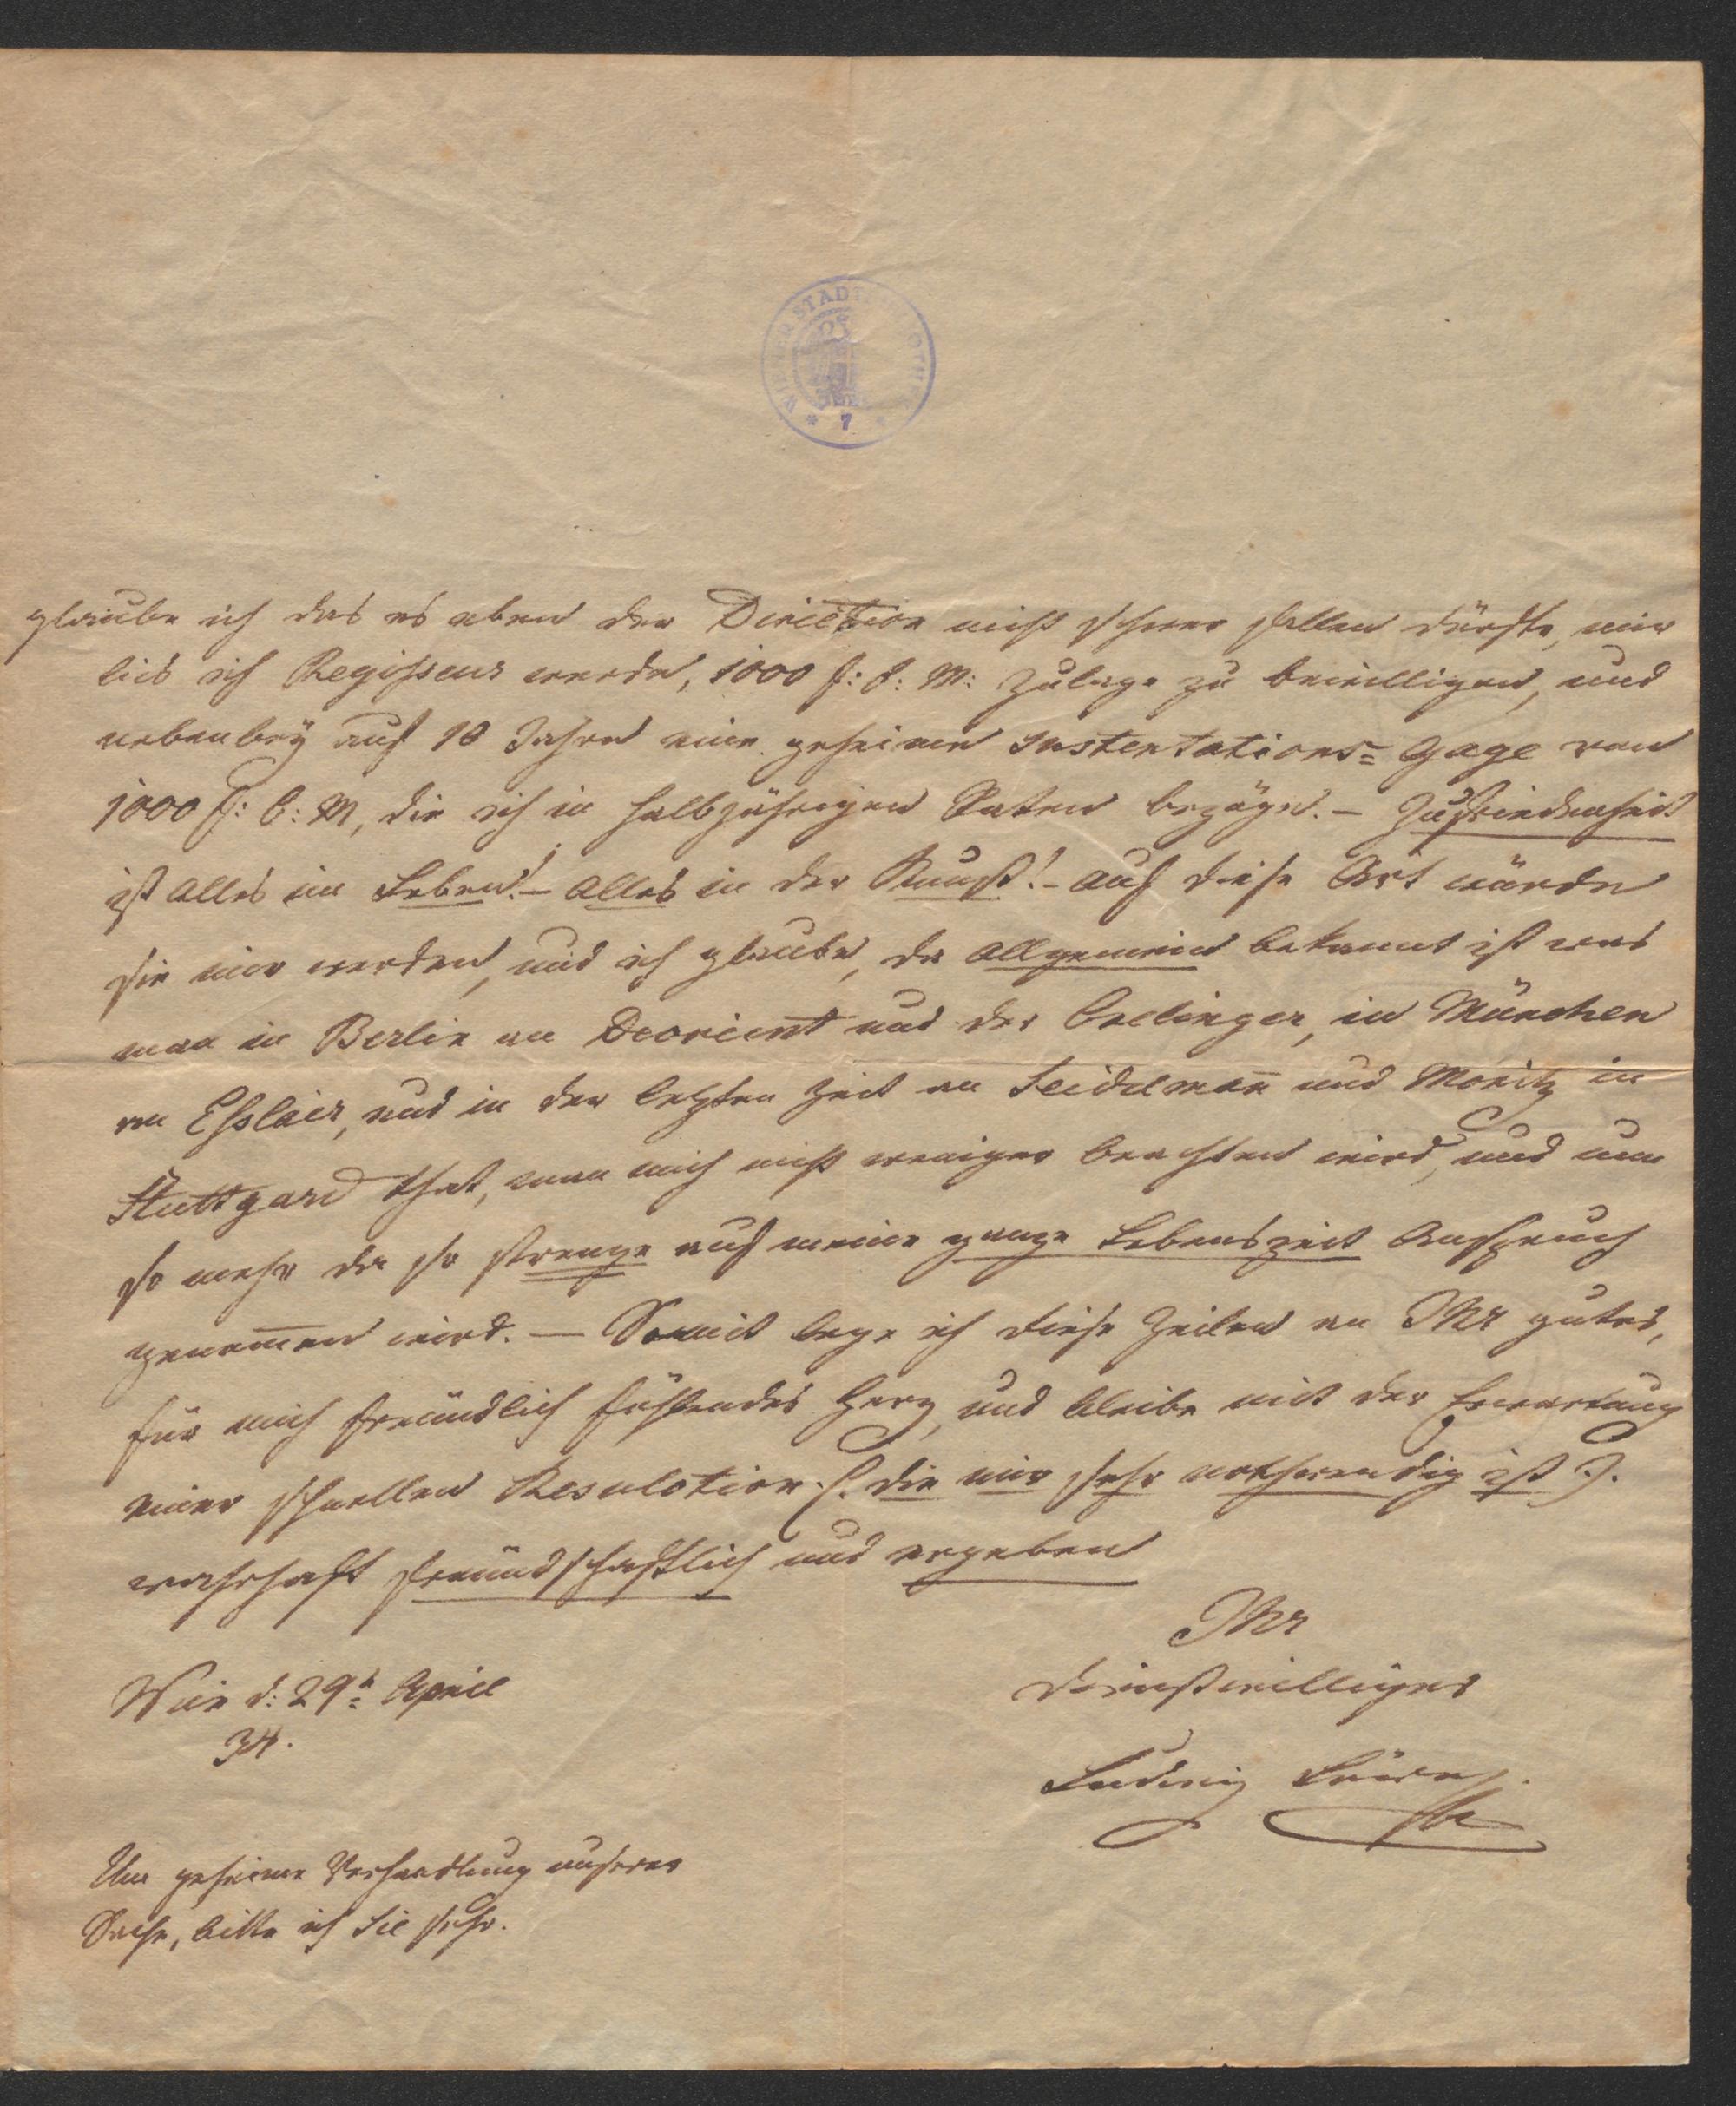 WIENER STADTBIBLIOTHEK
* 7 *
glaube ich das es eben der Direction nicht schwer fallen dürfte, mir
bis ich Regisseur werde, 1000 f: C: M: Zulage zu bewilligen, und
nebenbey auf 10 Jahre eine geheime Sustentations= Gage von
1000 f: C: M, die ich in halbjährigen Raten bezöge. – Zufriedenheit
ist Alles im Leben! – Alles in der Kunst! – auf diese Art würde
sie mir werden, und ich glaube, da allgemein bekannt ist was
man in Berlin an Devrient und der Crelinger, in München
an Esslair, und in der letzten Zeit an Seidelmañ und Moritz in
Stuttgard that, man mich nicht weniger beachten wird, und um
so mehr da so strenge auf meine ganze Lebenszeit Anspruch
genom̄en wird. — Somit lege ich diese Zeilen an Ihr gutes,
für mich freundlich fühlendes Herz, und bleibe mit der Erwartung
einer schnellen Resulotion (: die mir sehr nothwendig ist :)
wahrhaft freundschaftlich und ergeben
Ihr
dienstwilliger
Ludwig Löwe
Wien d: 29t April
34.
Um geheime Verhandlung unserer
Sache, bitte ich Sie sehr.